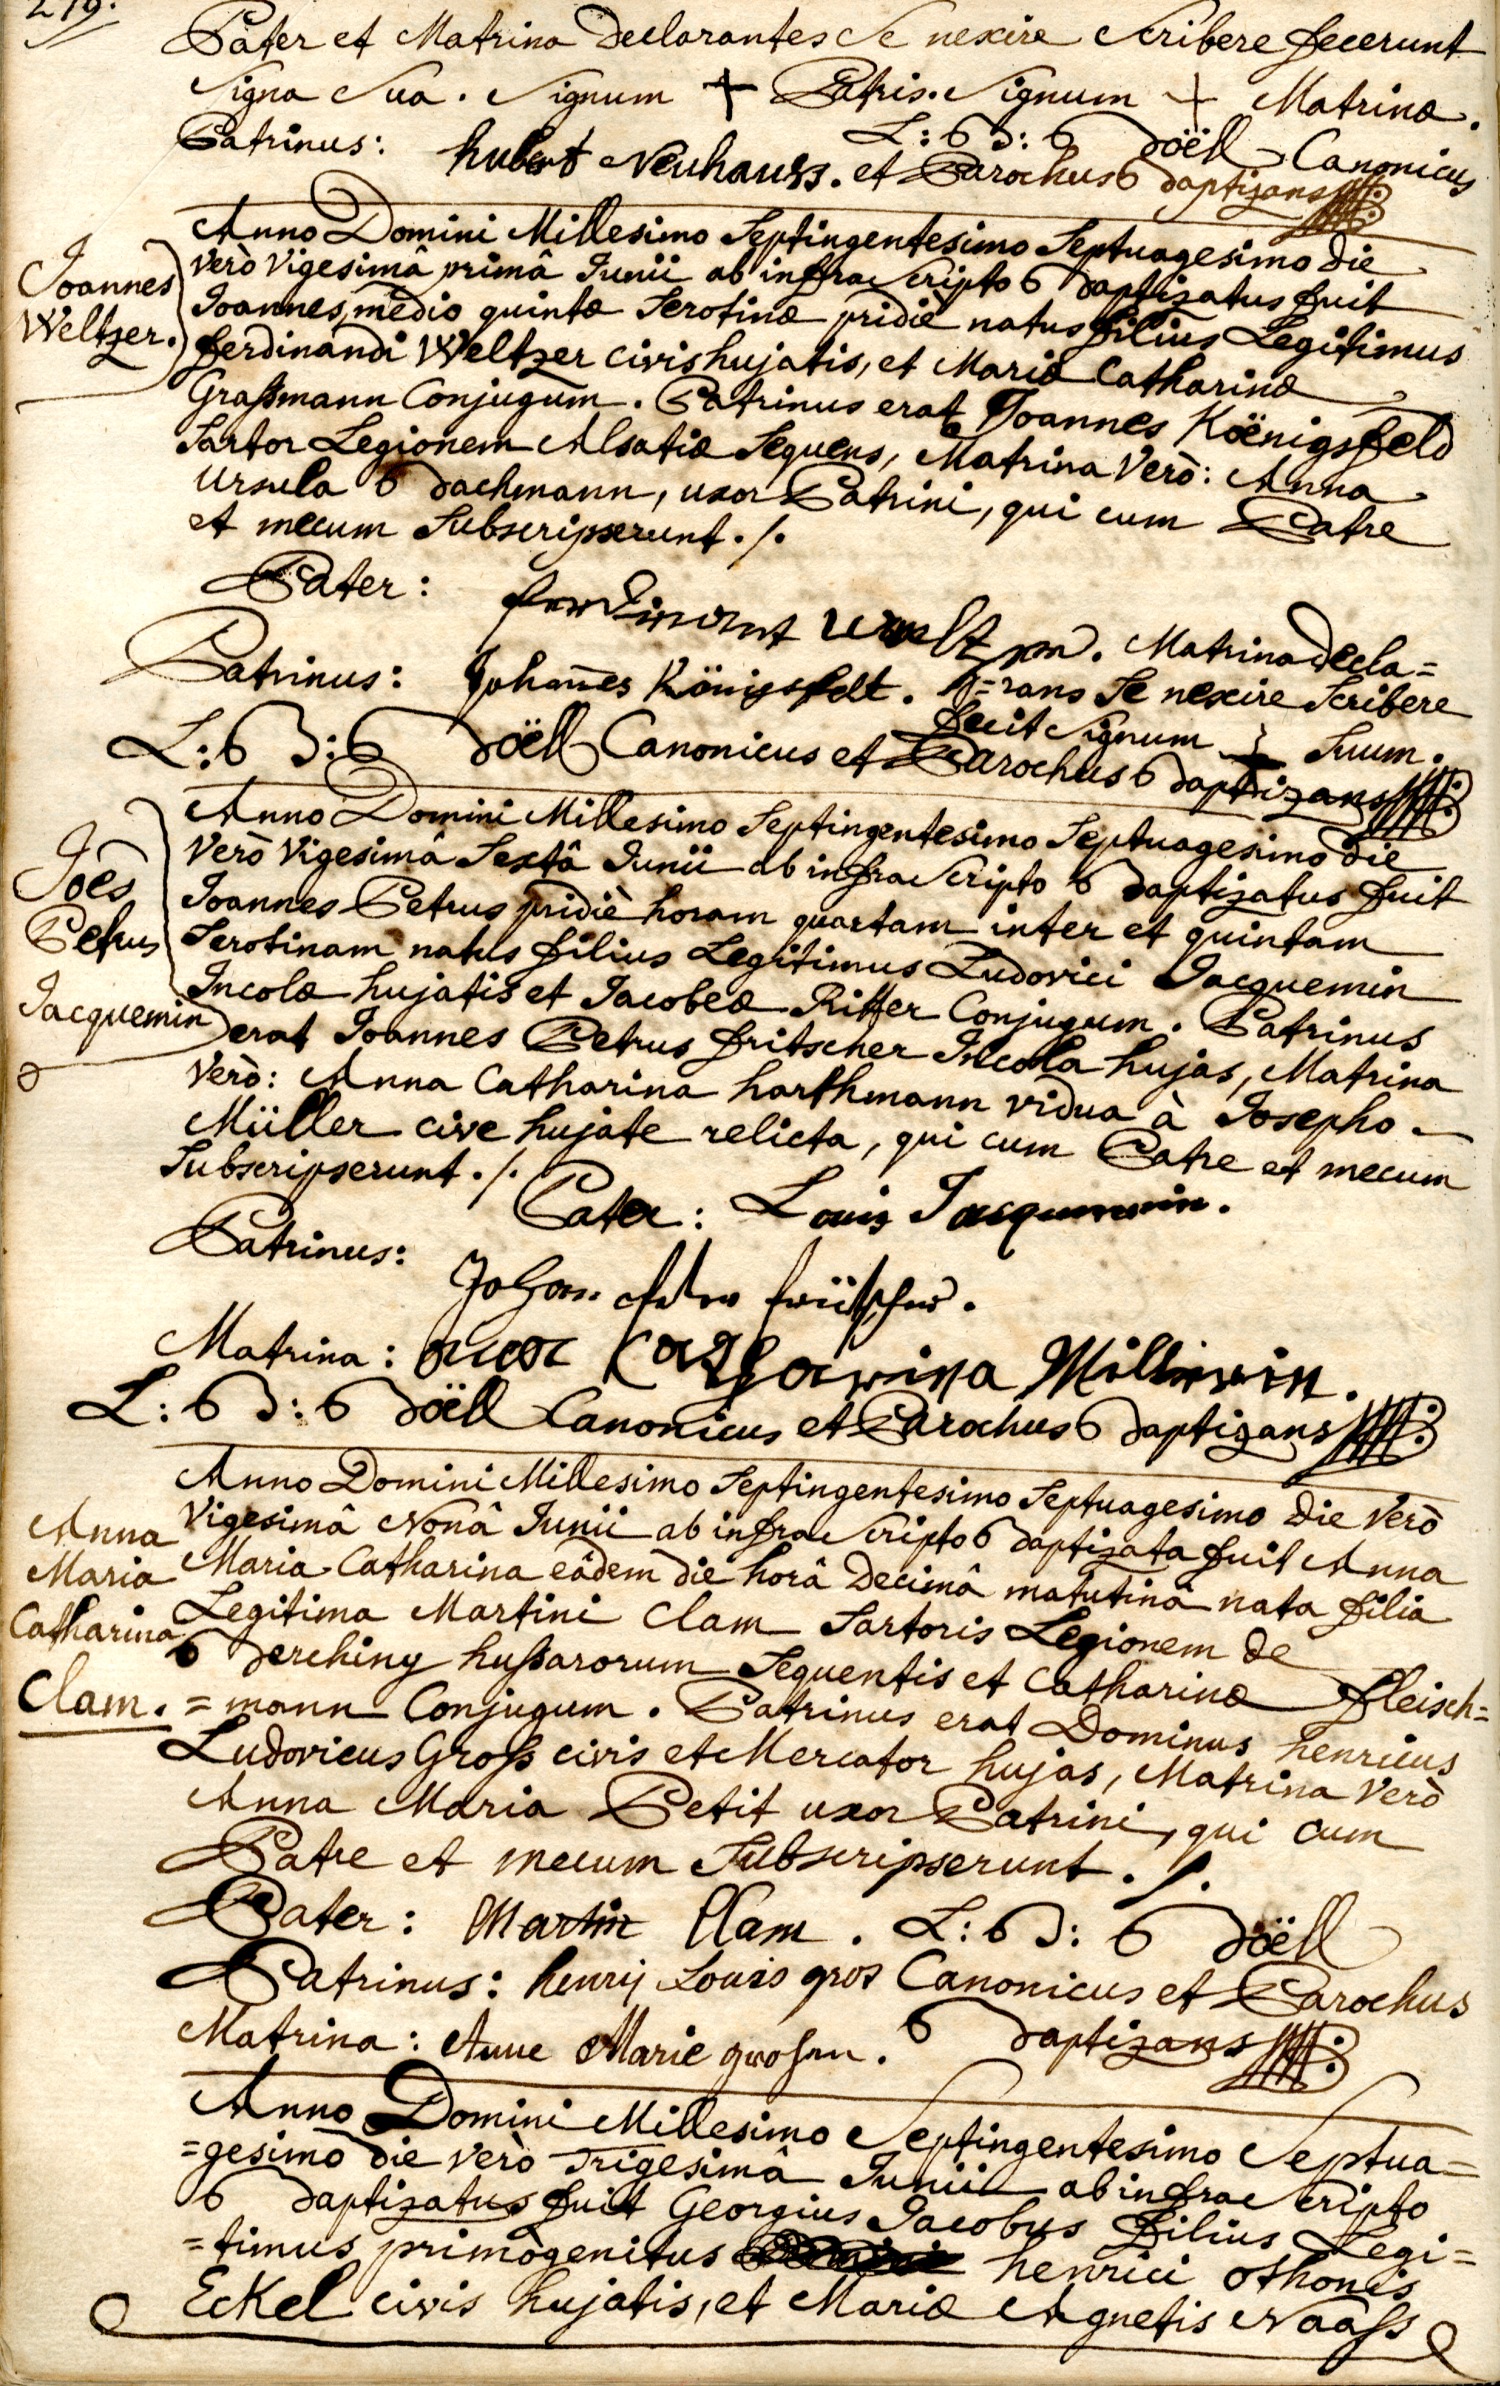 219.
Pater et Matrina declarantes se nescire scribere fecerunt
signa sua. Signum + Patris. Signum + Matrinæ.
Patrinus: hubert Neuhauss. L: B: Böell Canonicus
et Parochus Baptizans
Joannes
Weltzer.
Anno Domini Millesimo Septingentesimo Septuagesimo die
Verò Vigesimâ primâ Junii ab infra scripto Baptizatus fuit
Joannes, medio quintæ Serotinæ pridiè natus filius Legitimus
ferdinandi Weltzer civis hujatis, et Mariæ Catharinæ
Graßmann Conjugum. Patrinus erat Joannes Köenigsfeld
Sartor Legionem Alsatiæ Sequens, Matrina Verò: Anna
Ursula Bachmann, uxor Patrini, qui cum Patre
et mecum Subscripserunt ./.
Pater: ferdinant weltzer.
Patrinus: Johañes Königsfelt.
Matrina decla=
=rans Se nescire Scribere
fecit Signum + Suum.
L: B: Böell Canonicus et Parochus Baptizans
Joes
Petrus
Jacquemin
Anno Domini Millesimo Septingentesimo Septuagesimo die
Verò Vigesimâ Sextâ Junii ab infra scripto Baptizatus fuit
Joannes Petrus pridiè horam quartam inter et quintam
Serotinam natus filius Legitimus Ludovici Jacquemin
Incolæ hujatis et Jacobeæ Ritter Conjugum. Patrinus
erat Joannes Petrus fritscher Incola hujas, Matrina
Verò: Anna Catharina harthmann vidua à Josepho
Müller cive hujate relicta, qui cum Patre et mecum
Subscripserunt ./.
Pater: Louis Jacquemin.
Patrinus: Johan früscher.
Matrina: anna Catharina Millerin.
L: B: Böell Canonicus et Parochus Baptizans
Anna
Maria
Catharina
Clam.
Anno Domini Millesimo Septingentesimo Septuagesimo die Verò
Vigesimâ Nonâ Junii ab infra scripto Baptizata fuit Anna
Maria Catharina eâdem die horâ decimâ matutinâ nata filia
Legitima Martini Clam Sartoris Legionem de
Berchiny hußarorum Sequentis et Catharinæ fleisch=
=mann Conjugum. Patrinus erat Dominus henricus
Ludovicus Groß civis et Mercator hujas, Matrina Verò
Anna Maria Petit uxor Patrini, qui cum
Patre et mecum Subscripserunt ./.
Pater: Martin Clam. L: B: Böell
Patrinus: henrij Louis gros Canonicus et Parochus
Matrina: Anne Marie grosen. Baptizans
Anno Domini Millesimo Septingentesimo Septua=
=gesimo die Verò Trigesimâ Junii ab infra scripto
Baptizatus fuit Georgius Jacobus filius Legi=
=timus primògenitus henrici Othonis
Eckel civis hujatis, et Mariæ Agnetis Naaß